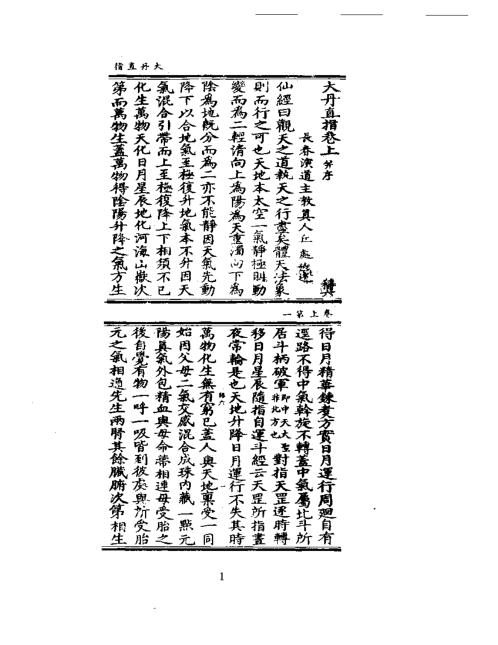 大丹直指
大丹直指卷上并序
長春演道主教真人丘處機述
仙經曰觀天之道執天之行盡矣體天法象
則而行之可也天地本太空一氣靜極則動
變而為二輕清向上為陽為天重濁向下為
陰為地既分而為二亦不能靜因天氣先動
降下以合地氣至極復升地氣本不升因天
氣混合引帶而上至極復降上下相須不已
化生萬物天化日月星辰地化河海山嶽次
第而萬物生蓋萬物得陰陽升降之氣方生
卷上第一
得日月精華鍊煑方實日月運行周廻自有
逕路不得中氣斡旋不轉蓋中氣屬北斗所
居斗柄破軍即中天大聖非北方也對指天罡逐時轉
移日月星辰隨指自運斗經云天罡所指晝
夜常輪是也天地升降日月運行不失其時
萬物化生無有窮已蓋人與天地稟受一同
始因父母二氣交感混合成珠内藏一點元
陽真氣外包精血與母命蒂相連母受胎之
後自覺有物一呼一吸皆到彼處與所受胎
元之氣相通先生兩腎其餘臟腑次第相生
1